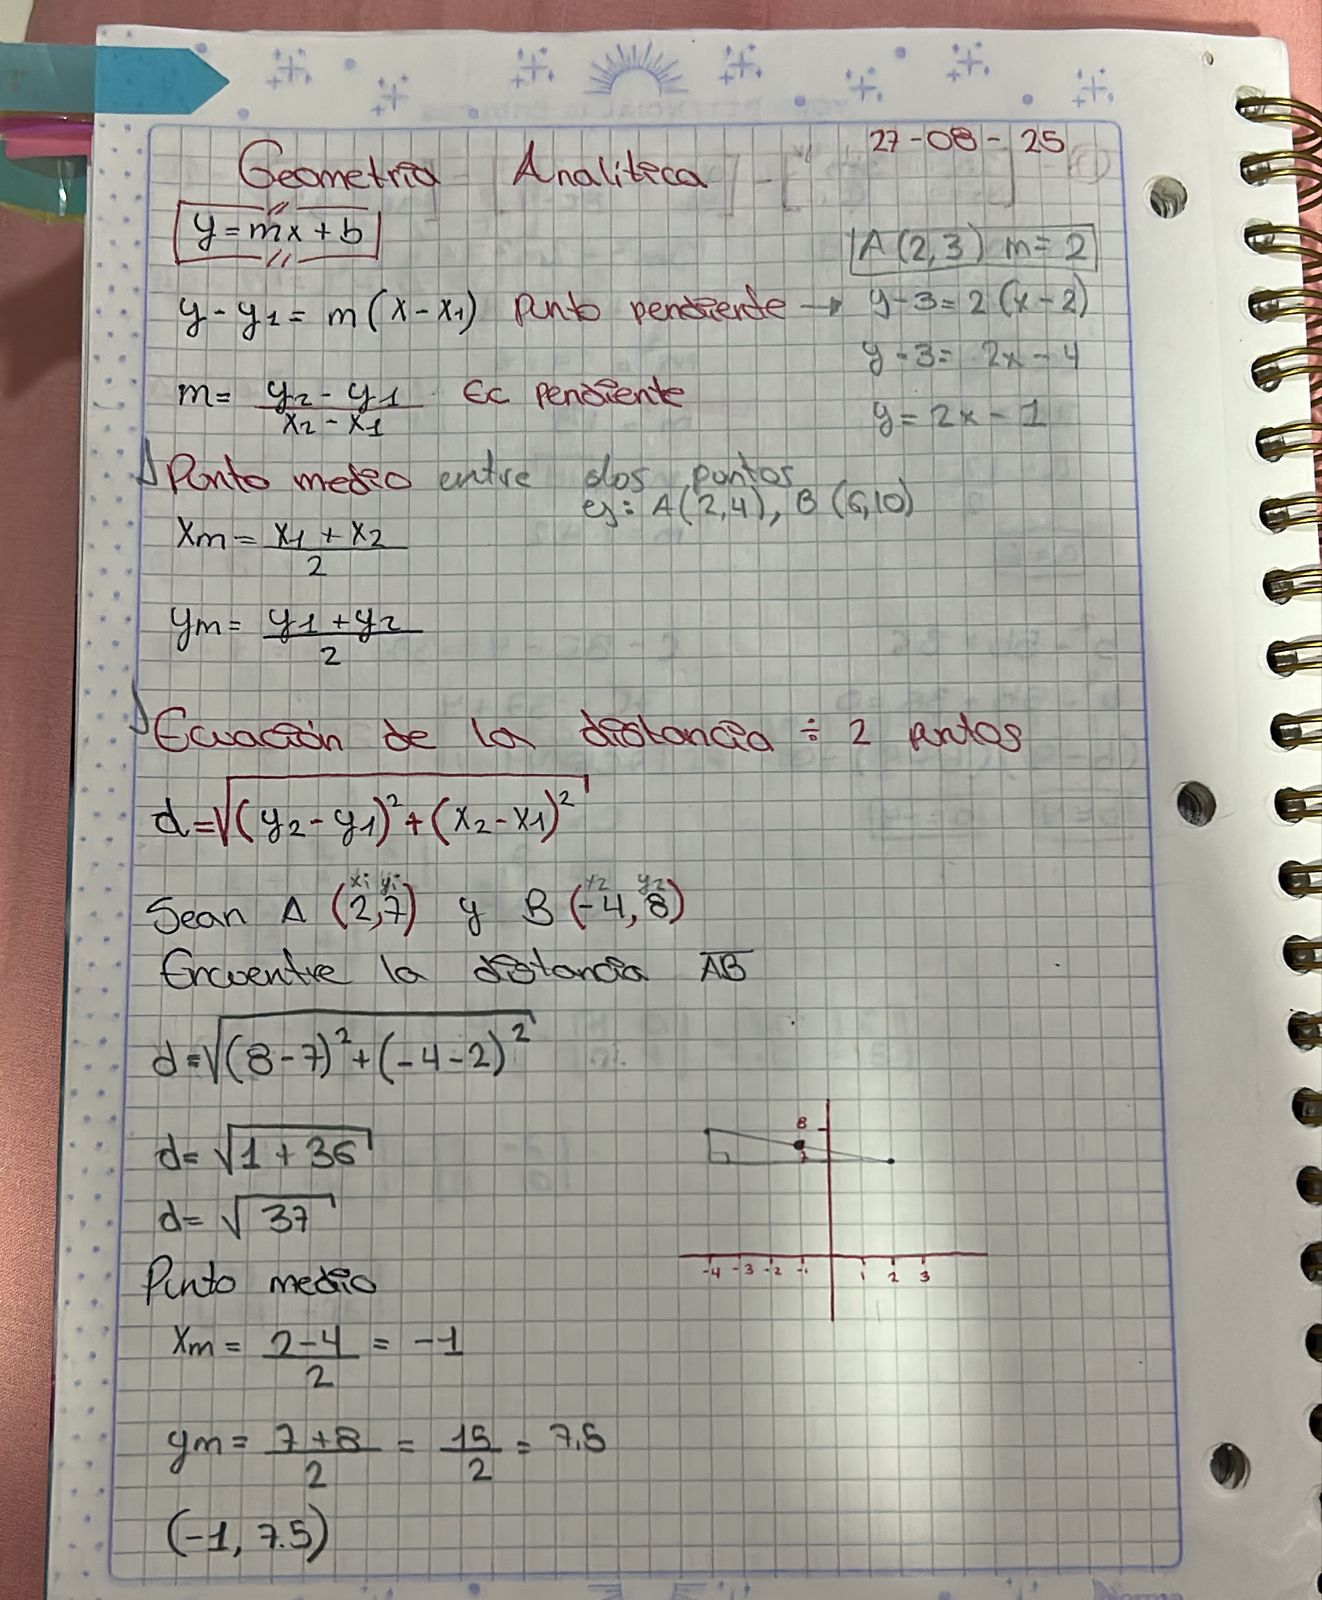 27-08-25
Geometría Analítica
y = mx + b
A(2,3) m = 2
y - y1 = m(x - x1) Punto pendiente → y - 3 = 2(x - 2)
y - 3 = 2x - 4
m = y2 - y1 / x2 - x1 Ec pendiente
y = 2x - 1
Punto medio entre dos puntos
ej: A(2,4), B(6,10)
xm = x1 + x2 / 2
ym = y1 + y2 / 2
Ecuación de la distancia ÷ 2 puntos
d = √(y2 - y1)² + (x2 - x1)²
x1 y1 x2 y2
Sean A (2,7) y B (-4,8)
Encuentre la distancia AB
d = √(8 - 7)² + (-4 - 2)²
8
7
d = √1 + 36
d = √37
-4 -3 -2 -1 1 2 3
Punto medio
xm = 2 - 4 / 2 = -1
ym = 7 + 8 / 2 = 15 / 2 = 7.5
(-1, 7.5)